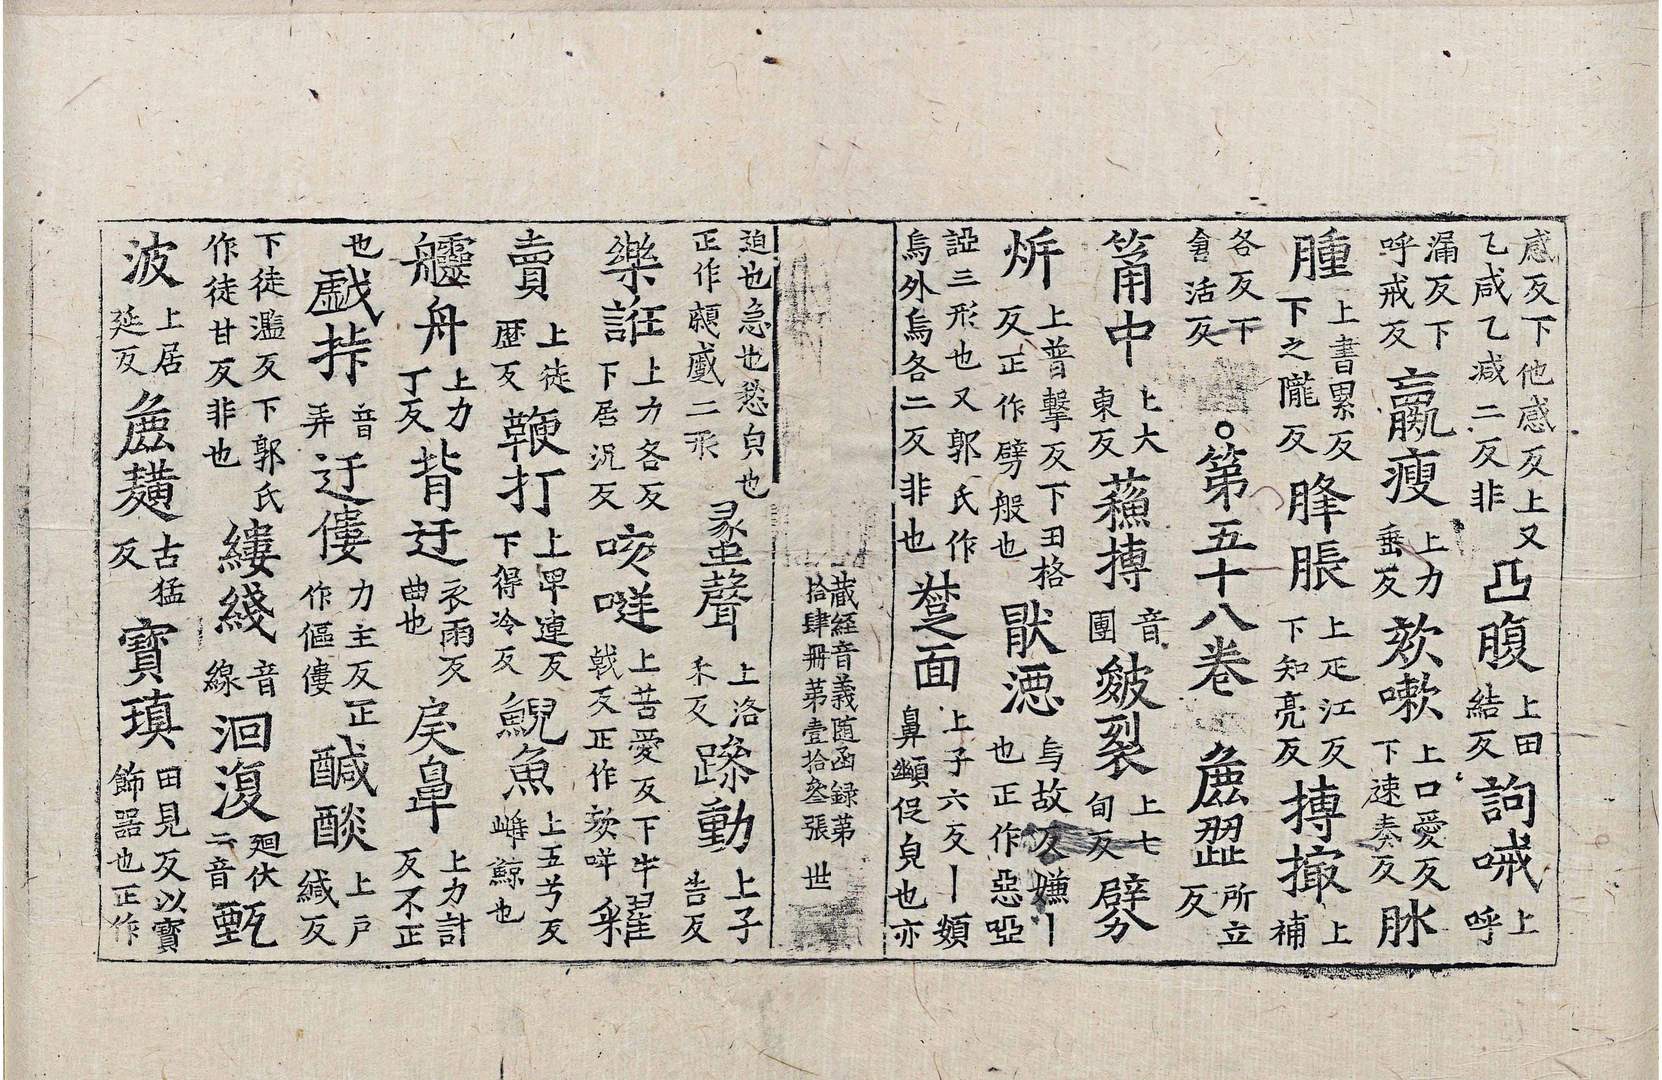 感反下他感反上又乙咸乙減二反非凸腹上田結反訽㖑上呼
漏反下呼戒反羸瘦上力垂反欬嗽上口愛反下速奏反脉
腫上書累反下之隴反胮脹上疋江反下知亮反摶撮上補
各反下會活反。第五十八卷麁澀所立反
筩中上大東反蘓摶音團皴裂上七旬反劈
㸞上普擊反下田格反正作劈般也猒㥁烏故反嫌丨也正作惡啞
誣三形也又郭氏作烏外烏各二反非也蹙面上子六反丨頞鼻顣促皃也亦
藏経音義随函録第拾肆冊第壹拾叁張世
迫也急也愁皃也正作顣慼二形蠡聲上洛禾反躁動上子告反
樂誑上力各反下居況反咳嗟上苦愛反下牛戟反正作欬咩糴
賣上徒歷反鞭打上卑連反下得冷反鯢魚上五兮反雌鯨也
艫舟上力丁反背迂衣雨反曲也戾鼻上力計反不正
也戱挊音弄迂僂力主反正作傴僂醎醶上戶緘反
下徒濫反下郭氏作徒甘反非也縷綫音線洄澓廻伏二音甄
波上居延反麁䵃古猛反寶瑱田見反以寶飾器也正作